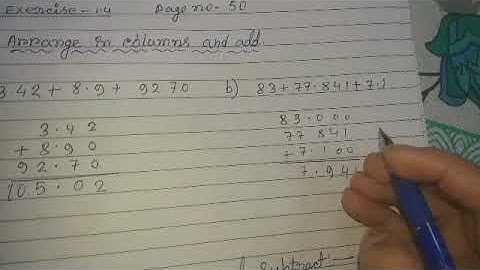 Exercise - 1.4 Page no - 50
Arrange in columns and add
3.42 + 8.9 + 92.70 b) 83 + 77.841 + 7.1
3.42
+ 8.90
92.70
105.02
83.000
77 841
+ 7.100
7.94
Subtract